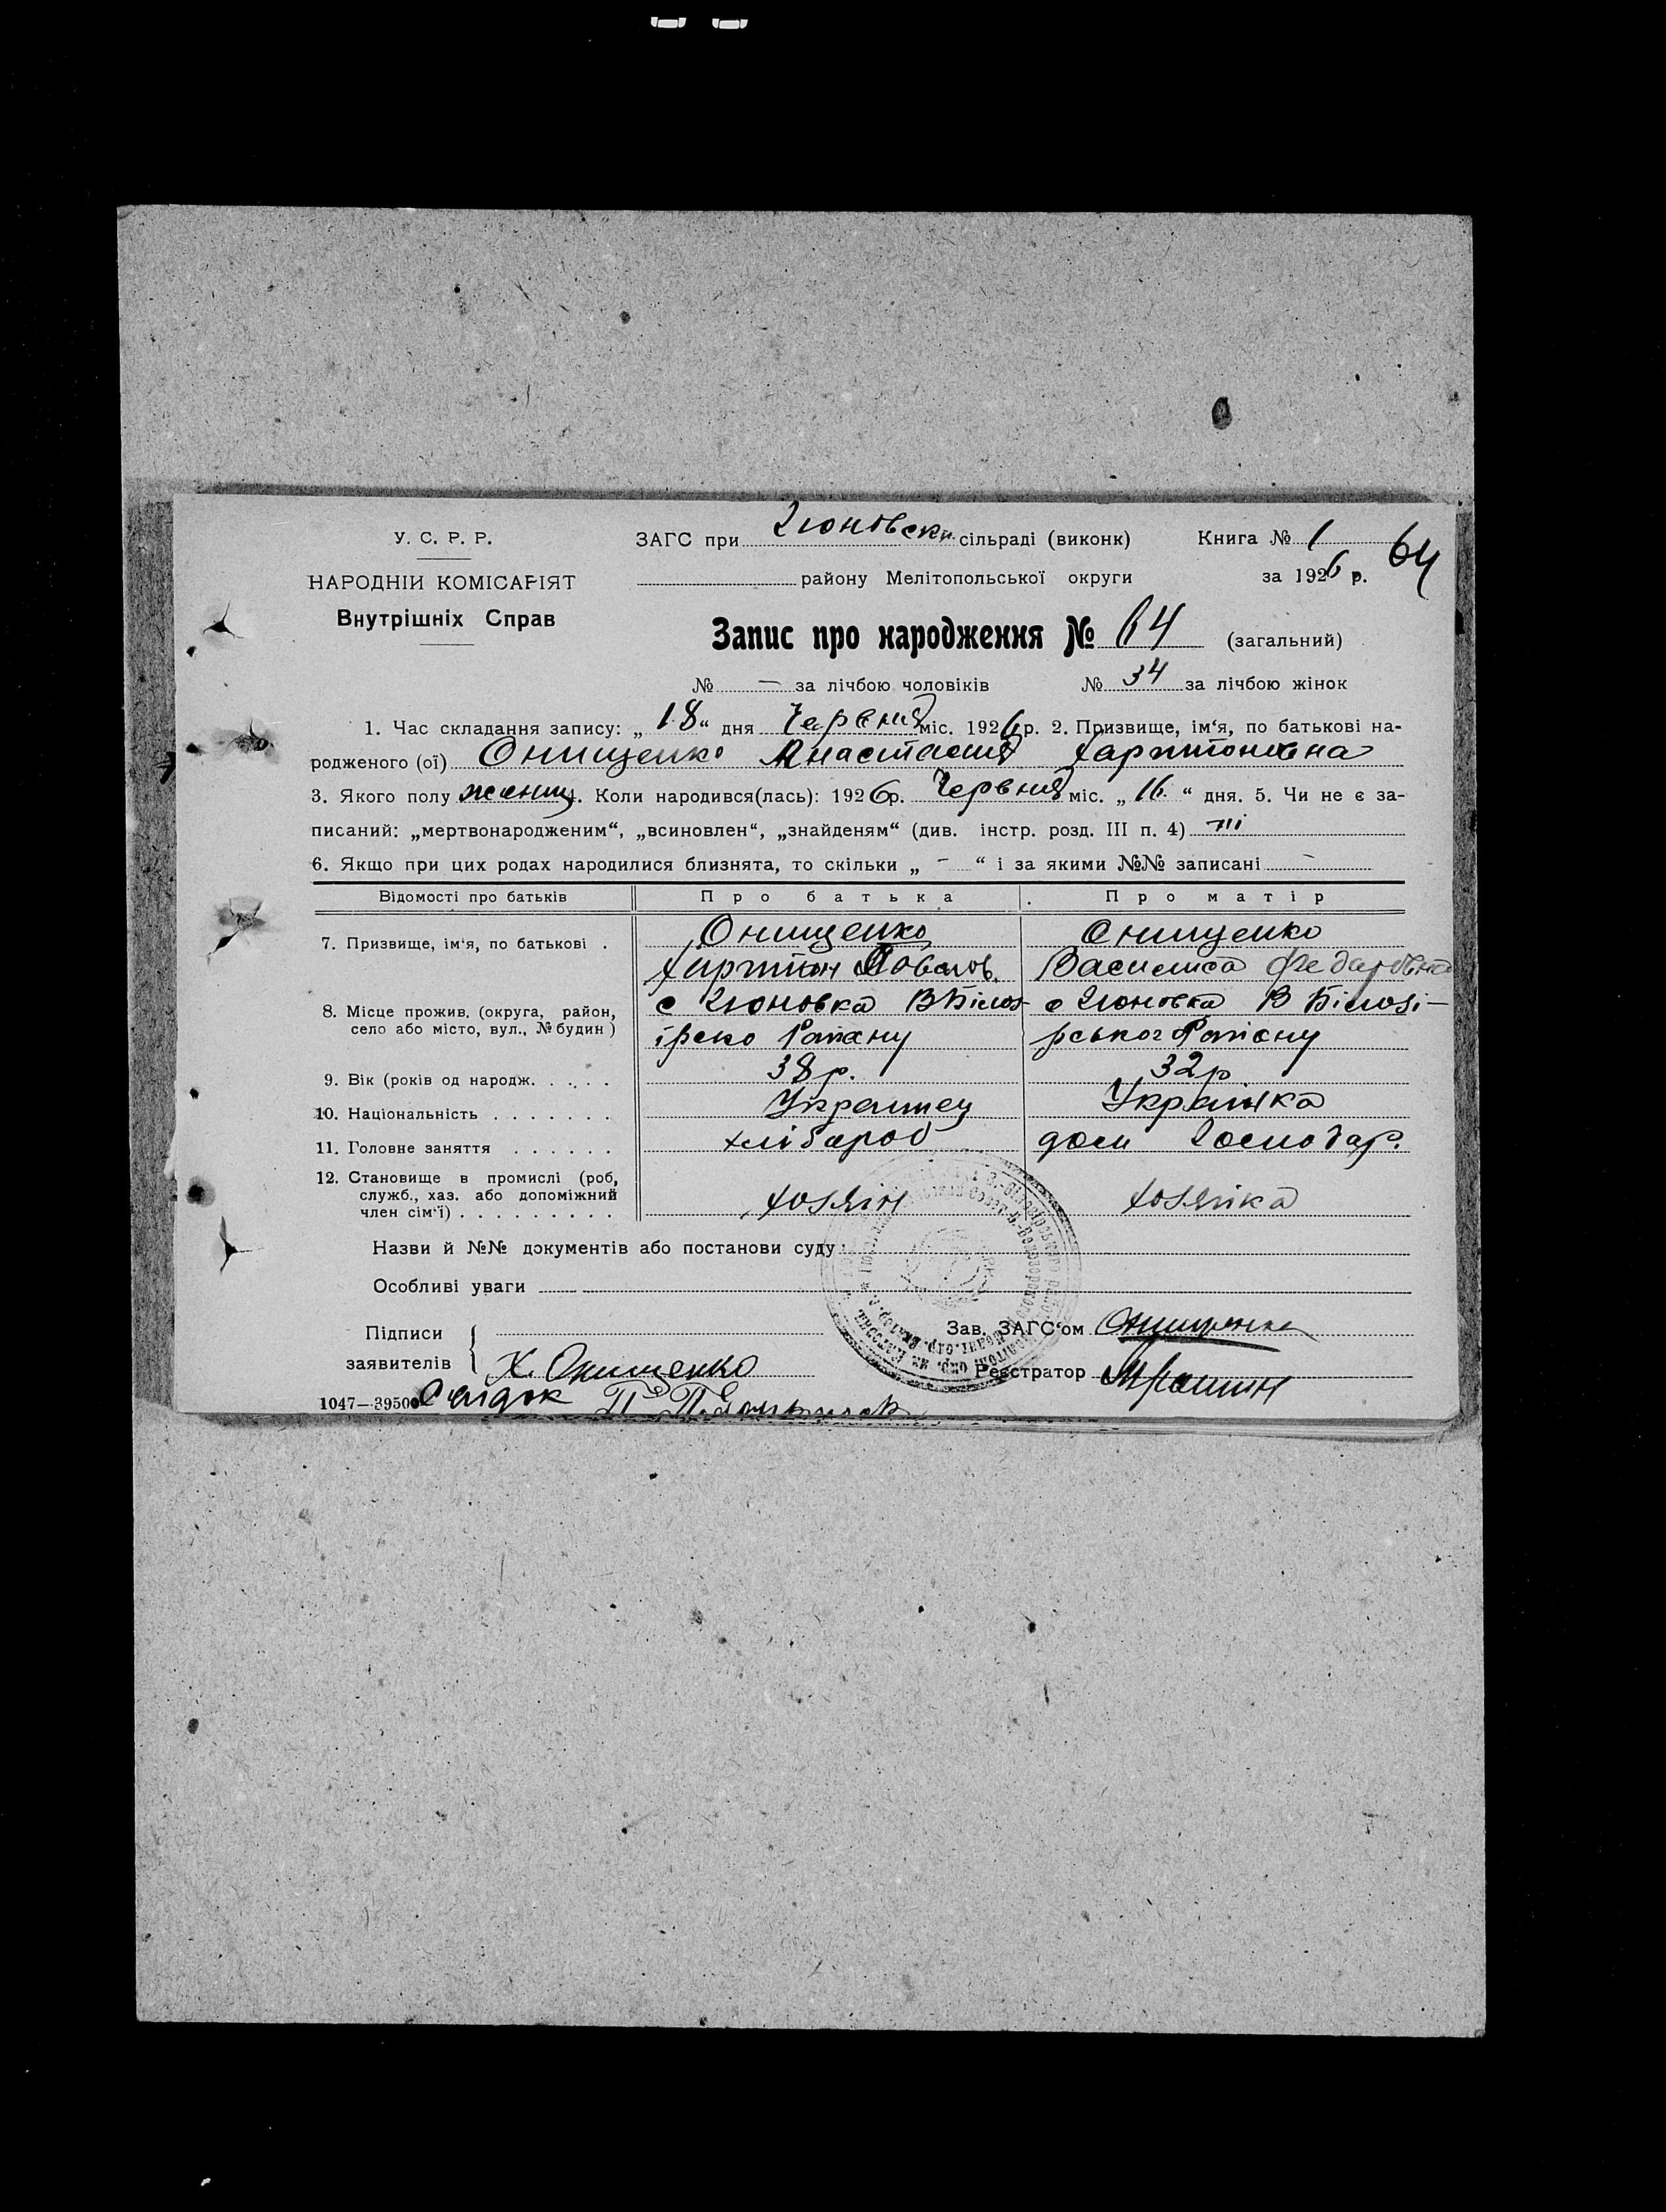 У. С. Р. Р.
НАРОДНІЙ КОМІСАРІЯТ
Внутрішніх Справ
ЗАГС при Гюновскі сільраді (виконк)
району Мелітопольської округи
Книга № 1
за 1926 р.
64
Запис про народження № 64 (загальний)
№ — за лічбою чоловіків № 34 за лічбою жінок
1. Час складання запису: „18“ дня Червня міс. 1926 р. 2. Призвище, ім‘я, по батькові на-
родженого (ої) Онищенко Анастасия Харитоновна
3. Якого полу женщ. 4. Коли народився(лась): 1926 р. Червня міс. „16“ дня. 5. Чи не є за-
писаний: „мертвонародженим“, „всиновлен“, „знайденям“ (див. інстр. розд. III п. 4) ні
6. Якщо при цих родах народилися близнята, то скільки „ - “ і за якими №№ записані -
Відомості про батьків Про батька Про матір
7. Призвище, ім‘я, по батькові . Онищенко Онищенко
Харитон Василиса Федаровна
8. Місце прожив. (округа, район, с Гюновка В Білоз- с Гюновка В Білозі-
село або місто, вул., № будин) ірско Раиану рського Раиону
9. Вік (років од народж. . . . . 38 р. 32 р
10. Національність . . . . . . . Украинец Украінка
11. Головне заняття . . . . . . хлібароб дом Господар.
12. Становище в промислі (роб,
служб., хаз. або допоміжний
член сім‘ї) . . . . . . . . . хозяін хозяйка
Назви й №№ документів або постанови суду:
Особливі уваги
Підписи
заявителів Х. Онищенко
Зав. ЗАГС‘ом
Реєстратор
1047—39500